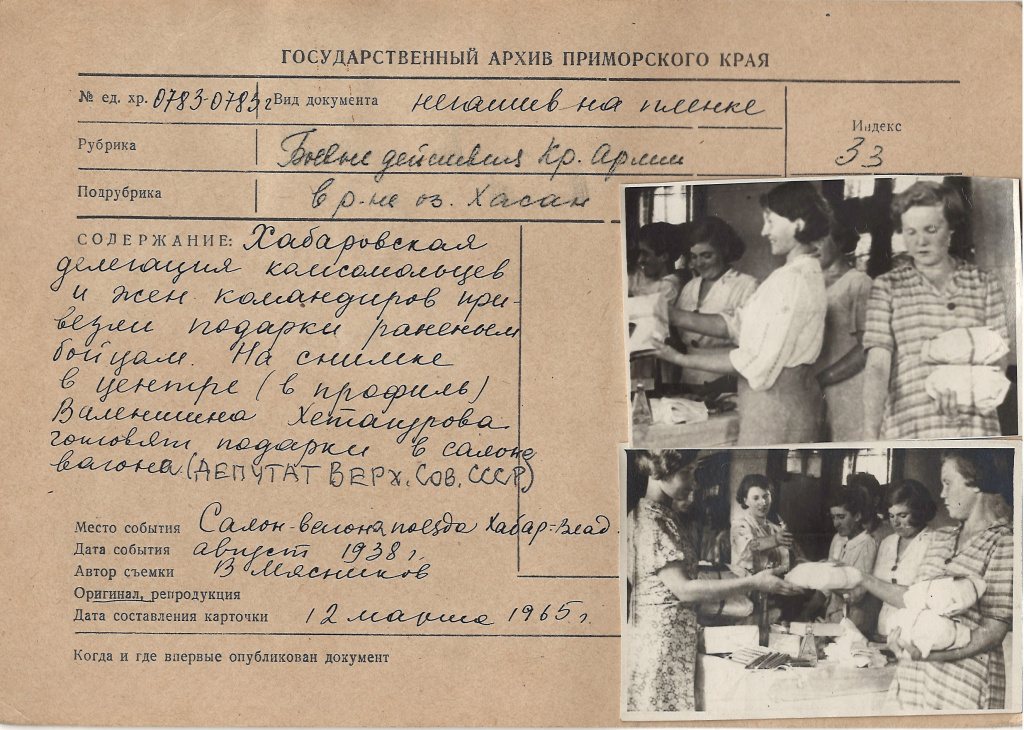 ГОСУДАРСТВЕННЫЙ АРХИВ ПРИМОРСКОГО КРАЯ
№ ед. хр. 0783-0783г Вид документа негатив на пленке
Индекс
33
Рубрика Боевые действия Кр. Армии
Подрубрика в р-не оз. Хасан
СОДЕРЖАНИЕ: Хабаровская
делегация комсомольцев
и жен командиров при-
везли подарки раненым
бойцам. На снимке
в центре (в профиль)
Валентина Хетагурова
готовят подарки в салоне
вагона (ДЕПУТАТ ВЕРХ. СОВ. СССР)
Место события Салон-вагона поезда Хабар-Влад.
Дата события август 1938 г.
Автор съемки В Мясников
Оригинал, репродукция
Дата составления карточки 12 марта 1965 г.
Когда и где впервые опубликован документ